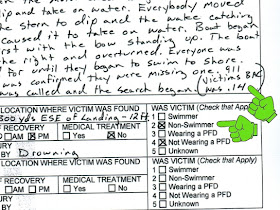 lip and take on water. Everybody moved
the stern to dip and the wake catching
caused it to take on water. Boat began
first with the bow standing up. The boat
the right and overturned. Everyone was
for until they began to swim to shore.
was confirmed they were missing one. 911
was called and the search began. (Victims BAC
was .14)
LOCATION WHERE VICTIM WAS FOUND
300 yds ESE of Landing - 12 ft.
RECOVERY
MEDICAL TREATMENT
AM PM
Yes No
INJURY
BY Drowning
LOCATION WHERE VICTIM WAS FOUND
RECOVERY
MEDICAL TREATMENT
AM PM
Yes No
WAS VICTIM (Check that Apply)
1 Swimmer
2 Non-Swimmer
3 Wearing a PFD
4 Not Wearing a PFD
5 Unknown
WAS VICTIM (Check that Apply)
1 Swimmer
2 Non-Swimmer
3 Wearing a PFD
4 Not Wearing a PFD
5 Unknown